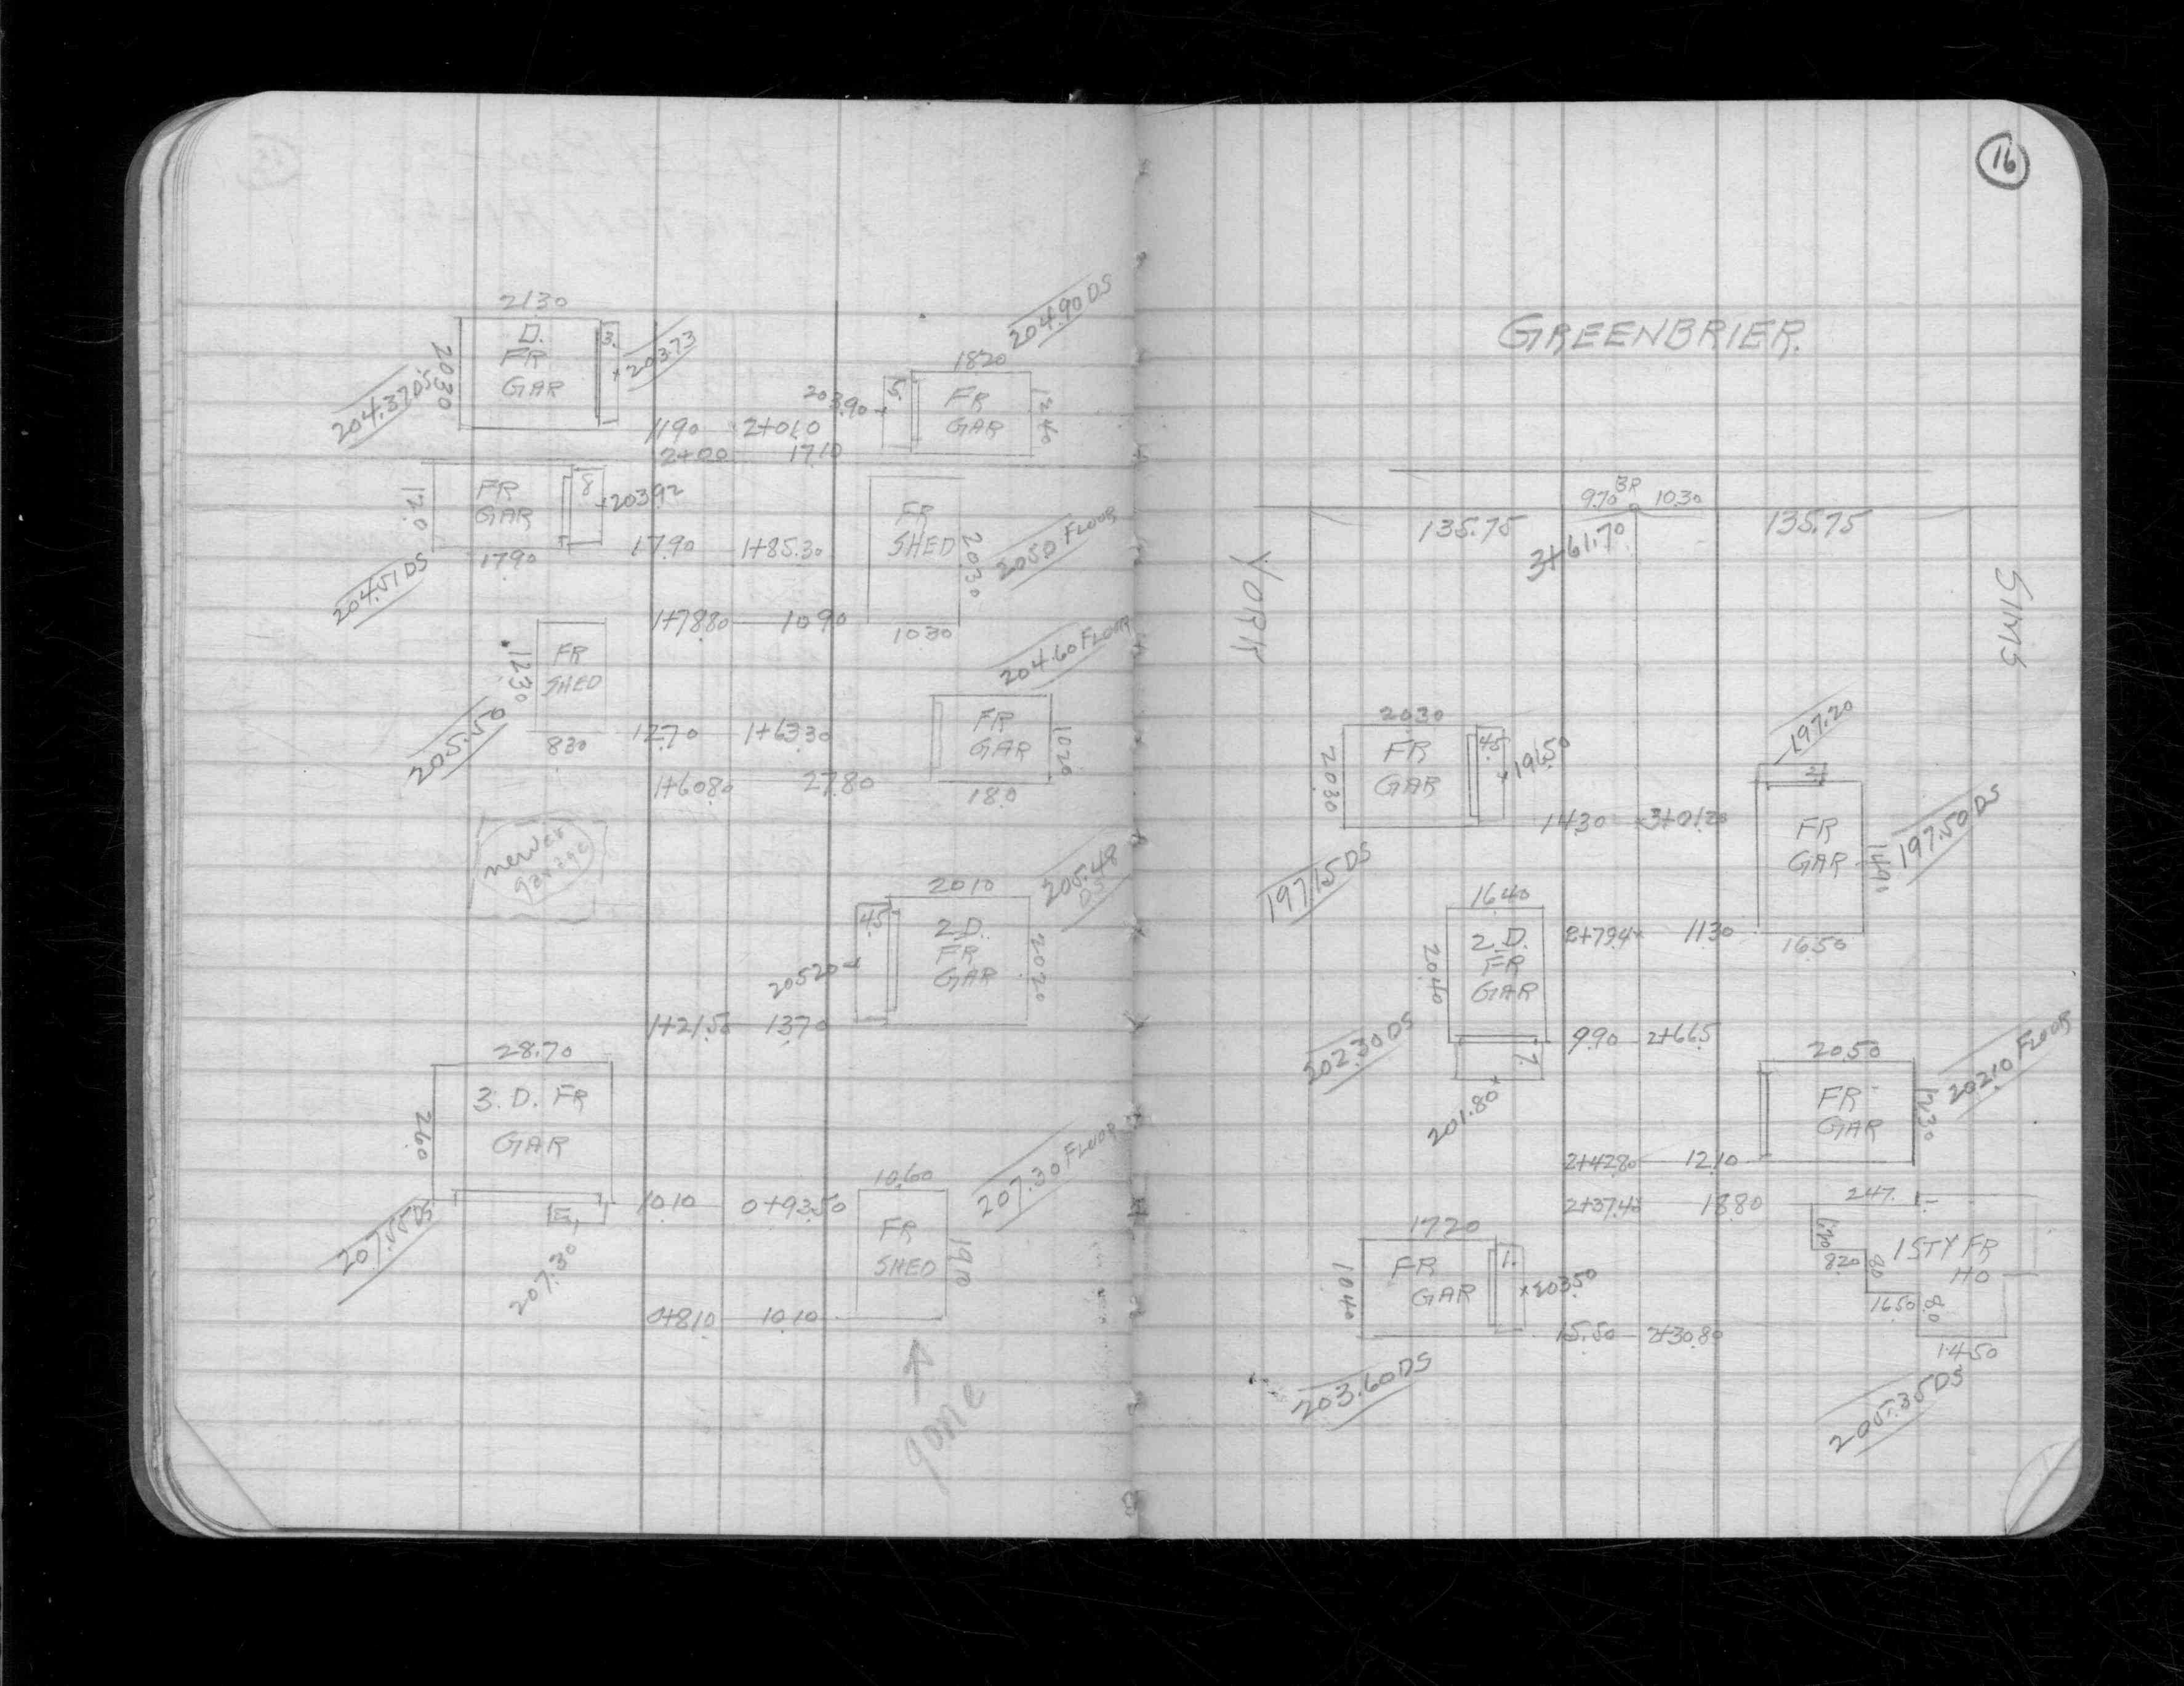 2130
D.
FR
GAR
2030
3.
×203.73
204.37 DS
204.90 DS
1820
5.
203.90
FR
GAR
1240
11.90 2+01.0
2+00 17.10
FR
GAR
12.0
8
×203.92
17.90
204.51 DS
17.90 1+85.30
FR
SHED
2030
205.0 FLOOR
1+78.80 10.90
10.30
FR
SHED
12.30
8.30
205.50
12.70 1+63.30
204.60 FLOOR
FR
GAR
10.20
18.0
1+60.80 27.80
newer
garage
2010
4.5
2 D.
FR
GAR
2020
205.48
DS
205.20
1+21.50 13.70
28.70
3. D. FR
GAR
26.0
207.55 DS
207.30
10.10 0+93.50
10.60
FR
SHED
19.0
207.30 FLOOR
0+81.0 10.10
gone
16
GREENBRIER.
9.70 BR 10.30
135.75
3+61.70
135.75
YORK
SIMS
20.30
FR
GAR
20.30
4.5
×196.50
197.15 DS
14.30 3+01.20
197.20
2.
FR
GAR
14.90
197.50 DS
16.50
16.40
2 D.
FR
GAR
20.40
2+79.4 11.30
202.30 DS
7.
201.80
9.90 2+66.5
20.50
FR
GAR
12.30
202.10 FLOOR
2+42.80 12.10
2+37.40 18.80
24.7
1 STY FR
HO
8.20
8.0
16.50
8.0
14.50
205.35 DS
17.20
FR
GAR
10.40
1.
×203.50
15.50 2+30.80
203.60 DS